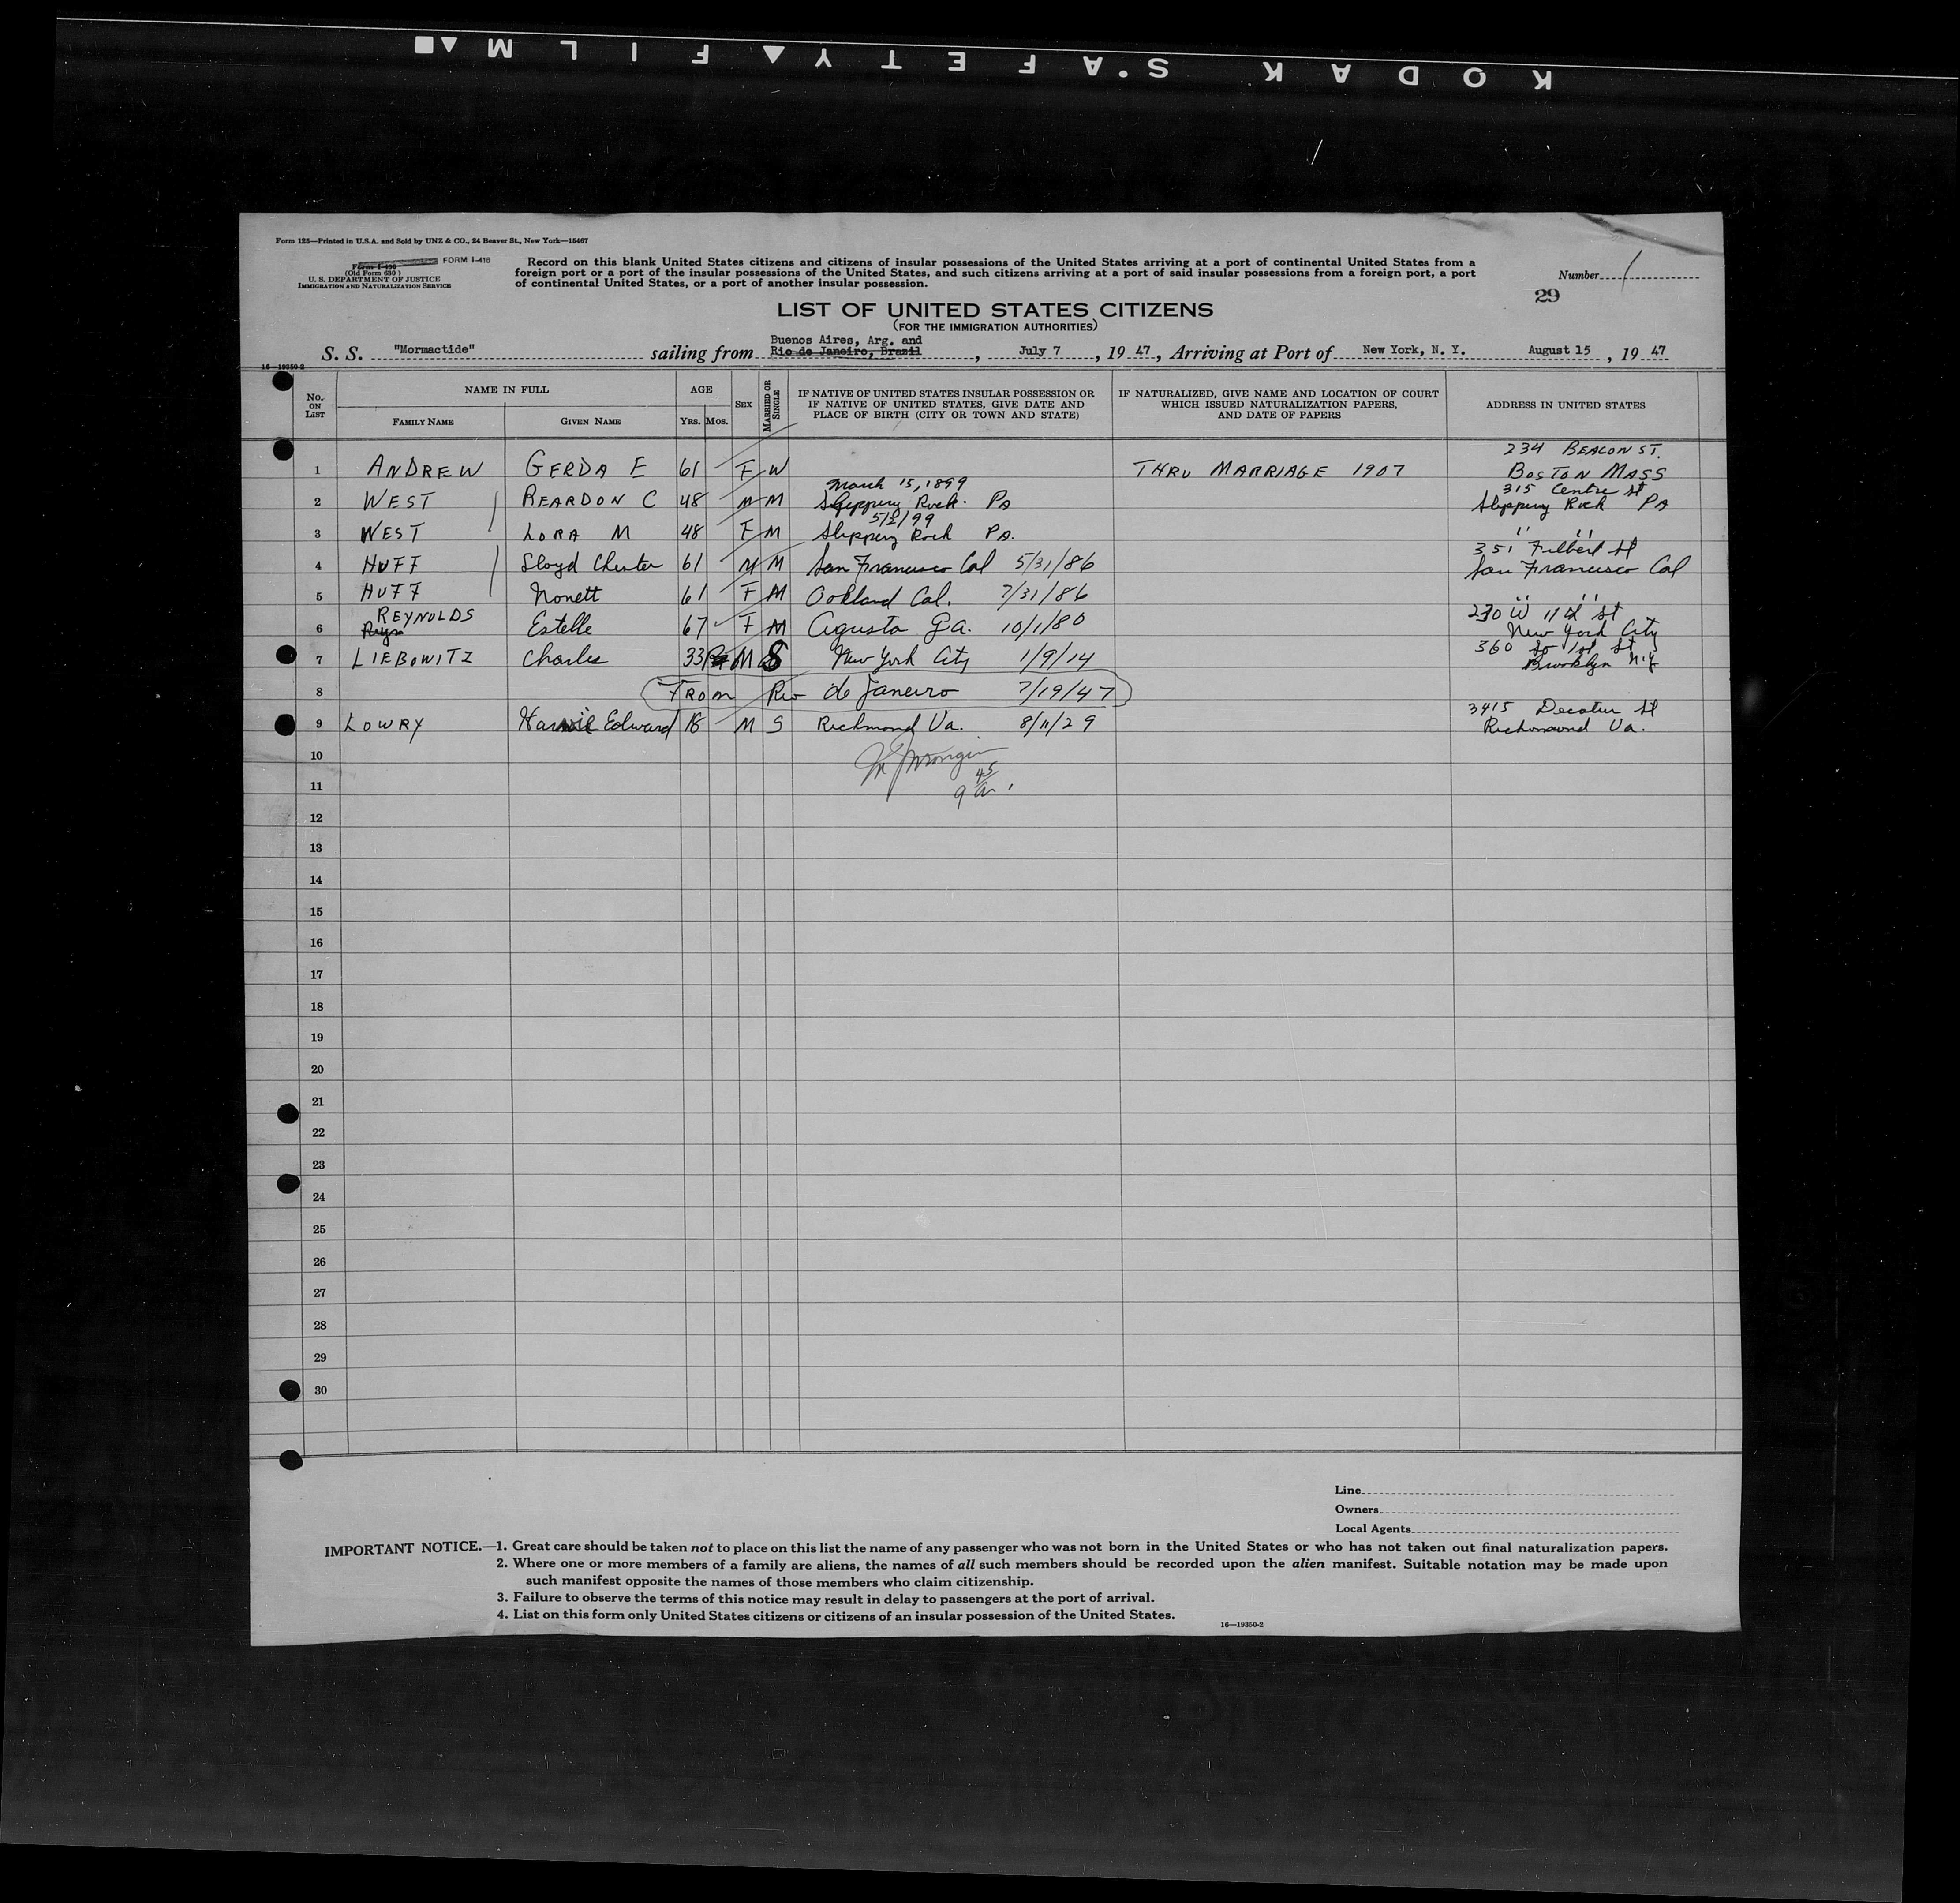 KODAK S'AFETY FILM
Form 125—Printed in U.S.A. and Sold by UNZ & CO., 24 Beaver St., New York—15467
Form I-430 FORM I-418
(Old Form 630)
U. S. DEPARTMENT OF JUSTICE
IMMIGRATION AND NATURALIZATION SERVICE
Record on this blank United States citizens and citizens of insular possessions of the United States arriving at a port of continental United States from a
foreign port or a port of the insular possessions of the United States, and such citizens arriving at a port of said insular possessions from a foreign port, a port
of continental United States, or a port of another insular possession.
Number 1
29
LIST OF UNITED STATES CITIZENS
(FOR THE IMMIGRATION AUTHORITIES)
Buenos Aires, Arg. and
S. S. "Mormactide" sailing from Rio de Janeiro, Brazil, July 7, 1947, Arriving at Port of New York, N. Y. August 15, 1947
16—19350-2
No. ON LIST NAME IN FULL FAMILY NAME GIVEN NAME AGE YRS. MOS. SEX MARRIED OR SINGLE IF NATIVE OF UNITED STATES INSULAR POSSESSION OR IF NATIVE OF UNITED STATES, GIVE DATE AND PLACE OF BIRTH (CITY OR TOWN AND STATE) IF NATURALIZED, GIVE NAME AND LOCATION OF COURT WHICH ISSUED NATURALIZATION PAPERS, AND DATE OF PAPERS ADDRESS IN UNITED STATES
234 BEACON ST.
1 ANDREW GERDA E 61 F W THRU MARRIAGE 1907 BOSTON MASS
March 15, 1899 315 Centre St
2 WEST REARDON C 48 M M Slippery Rock PA Slippery Rock PA
5/2/99
3 WEST LORA M 48 F M Slippery Rock PA. " "
351 Filbert St
4 HUFF Lloyd Chester 61 M M San Francisco Cal 5/31/86 San Francisco Cal
5 HUFF Nonett 61 F M Oakland Cal. 7/31/86 " "
REYNOLDS 230 W 11 St
6 Estelle 67 F M Agusta Ga. 10/1/80 New York City
360 So 1st St
7 LIEBOWITZ Charles 33 M S New York City 1/9/14 Brooklyn N.Y
8 FROM Rio de Janeiro 7/19/47
3415 Decatur St
9 LOWRY Edward 18 M S Richmond Va. 8/11/29 Richmond Va.
10
11
12
13
14
15
16
17
18
19
20
21
22
23
24
25
26
27
28
29
30
Line
Owners
Local Agents
IMPORTANT NOTICE.—1. Great care should be taken not to place on this list the name of any passenger who was not born in the United States or who has not taken out final naturalization papers.
2. Where one or more members of a family are aliens, the names of all such members should be recorded upon the alien manifest. Suitable notation may be made upon
such manifest opposite the names of those members who claim citizenship.
3. Failure to observe the terms of this notice may result in delay to passengers at the port of arrival.
4. List on this form only United States citizens or citizens of an insular possession of the United States.
16—19350-2